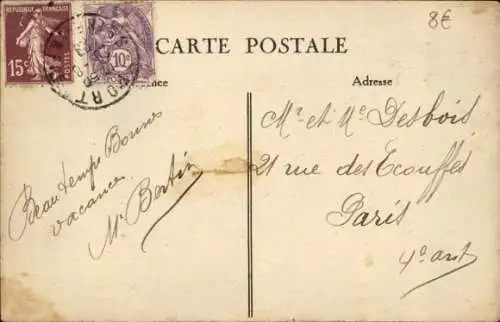 8€
REPUBLIQUE FRANÇAISE
15c
10c
CARTE POSTALE
Adresse
Beau temps Bonnes
vacances
Mr Bertin
Mr et Me Desbois
21 rue des Ecouffes
Paris
4e arrt